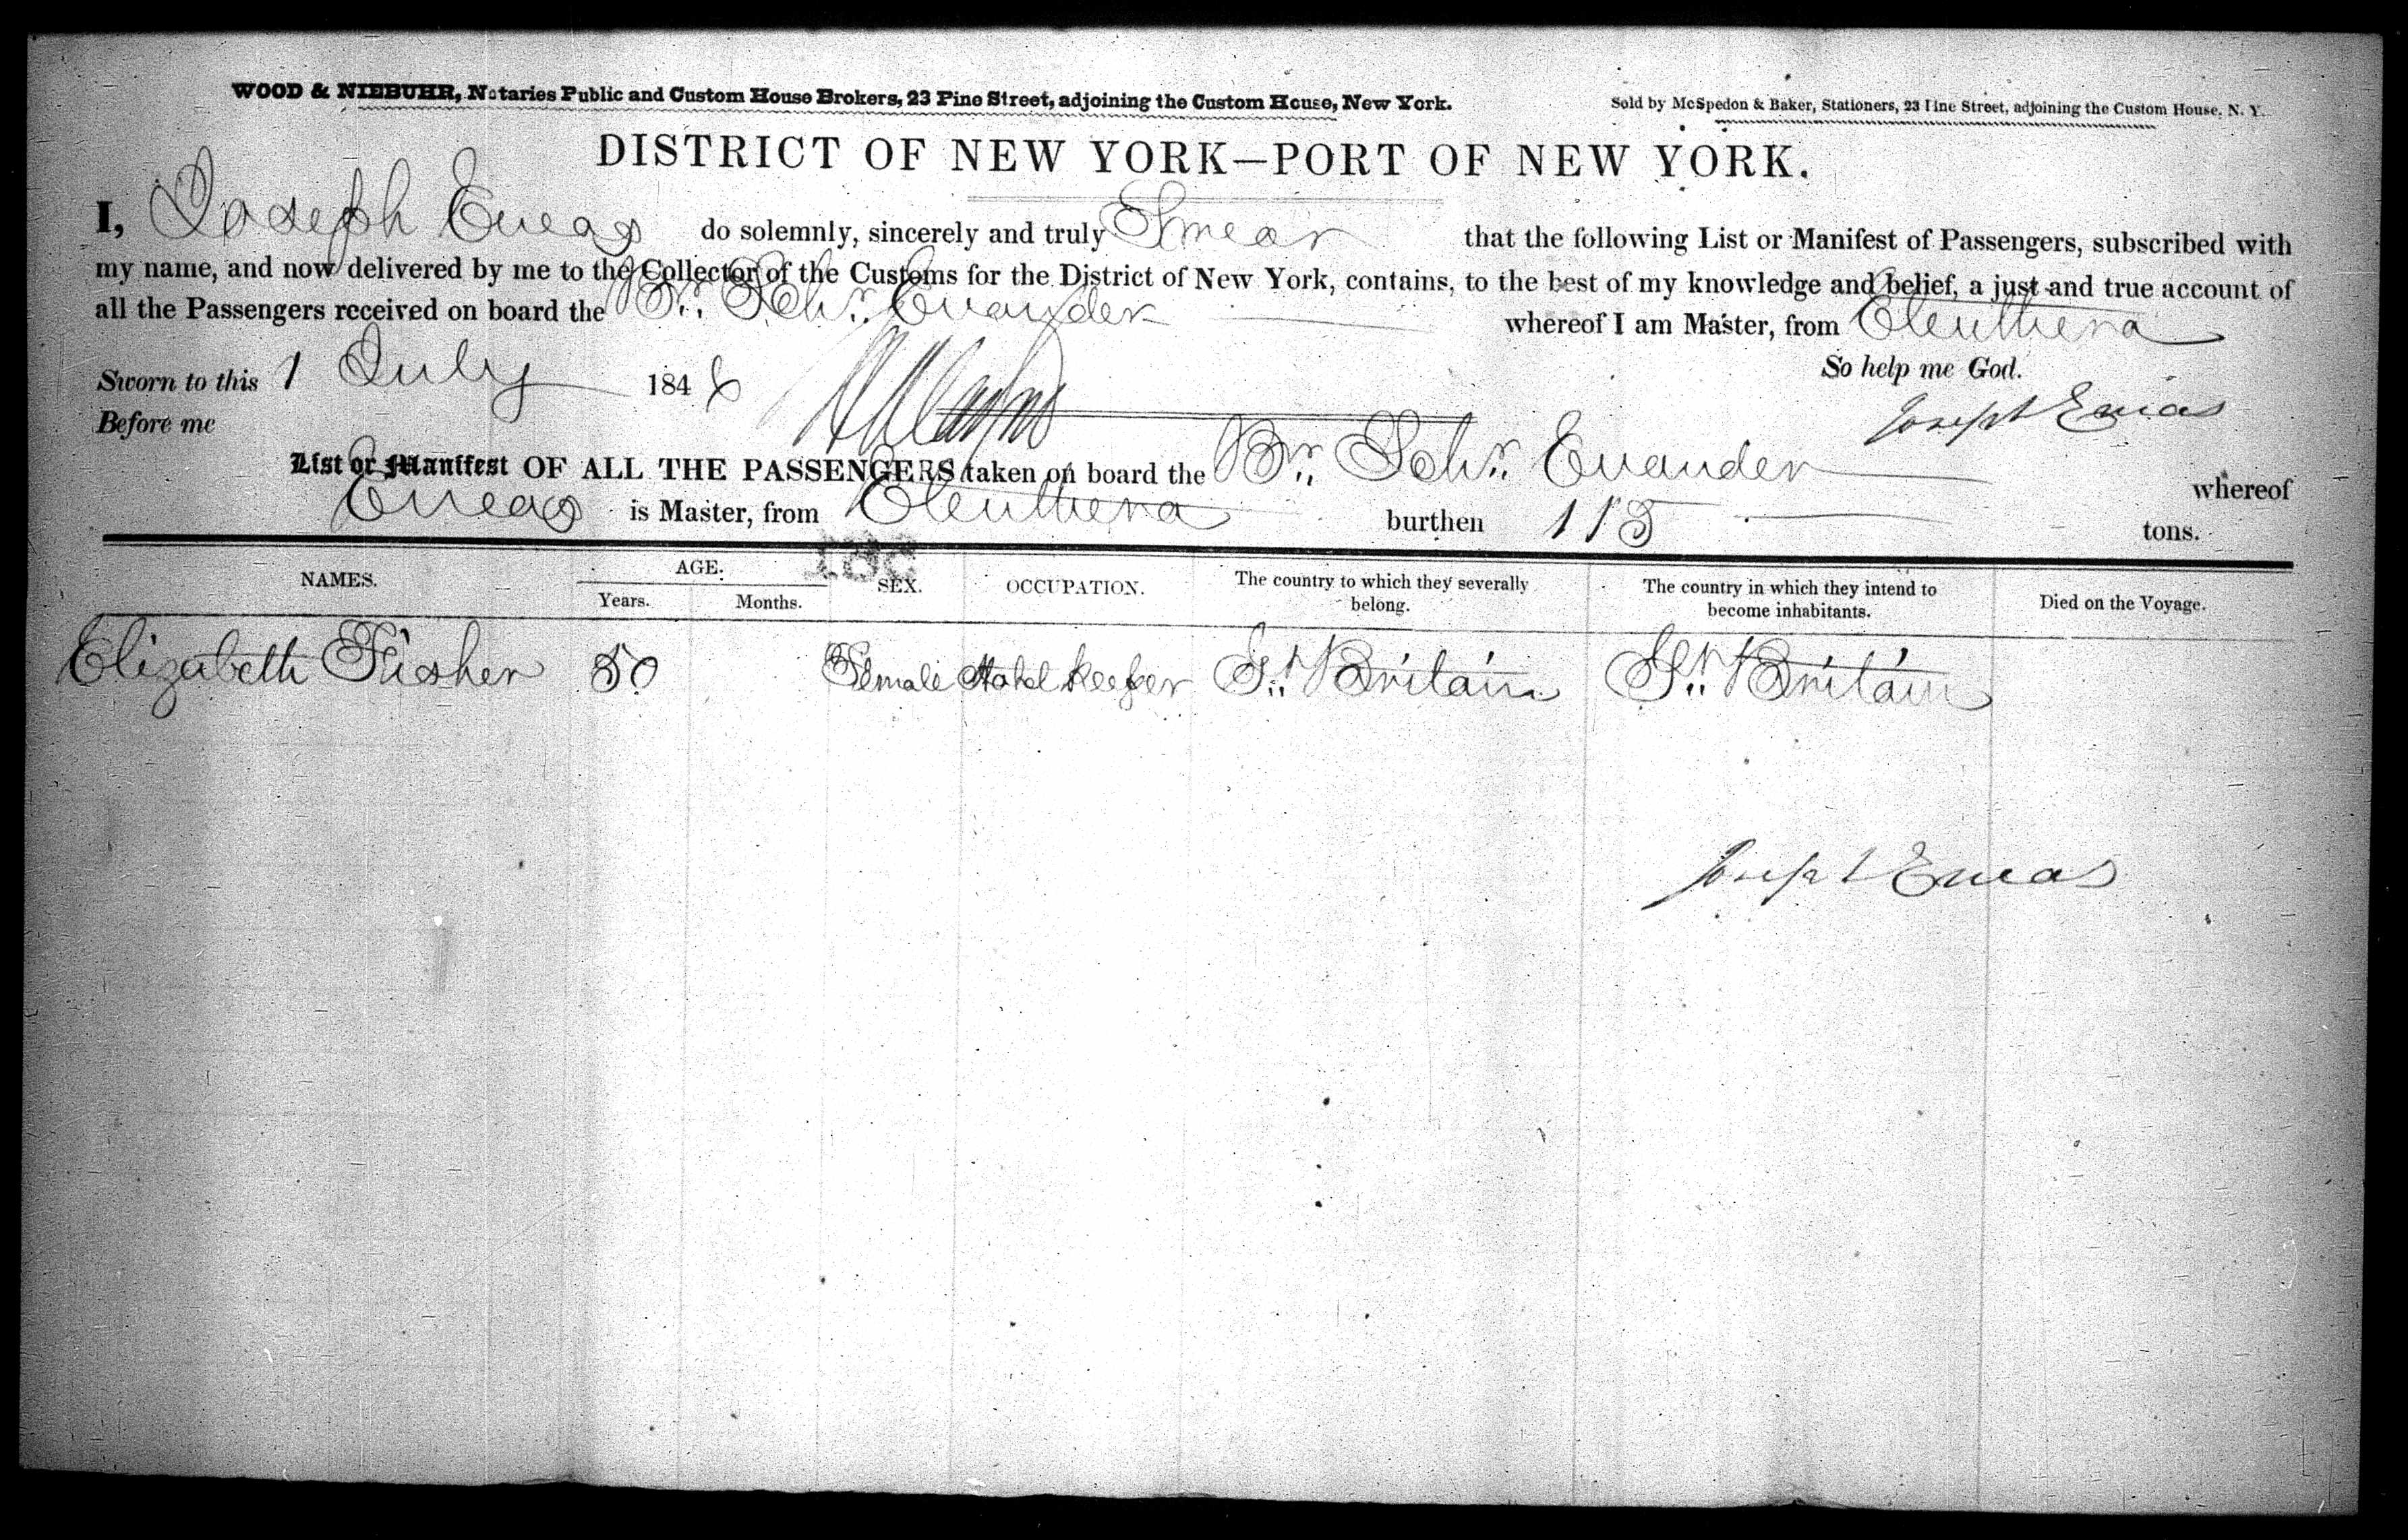 WOOD & NIEBUHR, Notaries Public and Custom House Brokers, 23 Pine Street, adjoining the Custom House, New York.
Sold by McSpedon & Baker, Stationers, 23 Pine Street, adjoining the Custom House, N. Y.
DISTRICT OF NEW YORK—PORT OF NEW YORK.
I, Joseph Eneas do solemnly, sincerely and truly Swear that the following List or Manifest of Passengers, subscribed with
my name, and now delivered by me to the Collector of the Customs for the District of New York, contains, to the best of my knowledge and belief, a just and true account of
all the Passengers received on board the Br. Schr. Evander whereof I am Master, from Eleuthera
So help me God.
Sworn to this 1 July 1846
Joseph Eneas
Before me
List or Manifest OF ALL THE PASSENGERS taken on board the Br. Schr. Evander whereof
Eneas is Master, from Eleuthera burthen 115 tons.
NAMES. AGE. Years. Months. SEX. OCCUPATION. The country to which they severally belong. The country in which they intend to become inhabitants. Died on the Voyage.
Elizabeth Fisher 50 Female Hotel keeper Gt. Britain Gt. Britain
Joseph Eneas